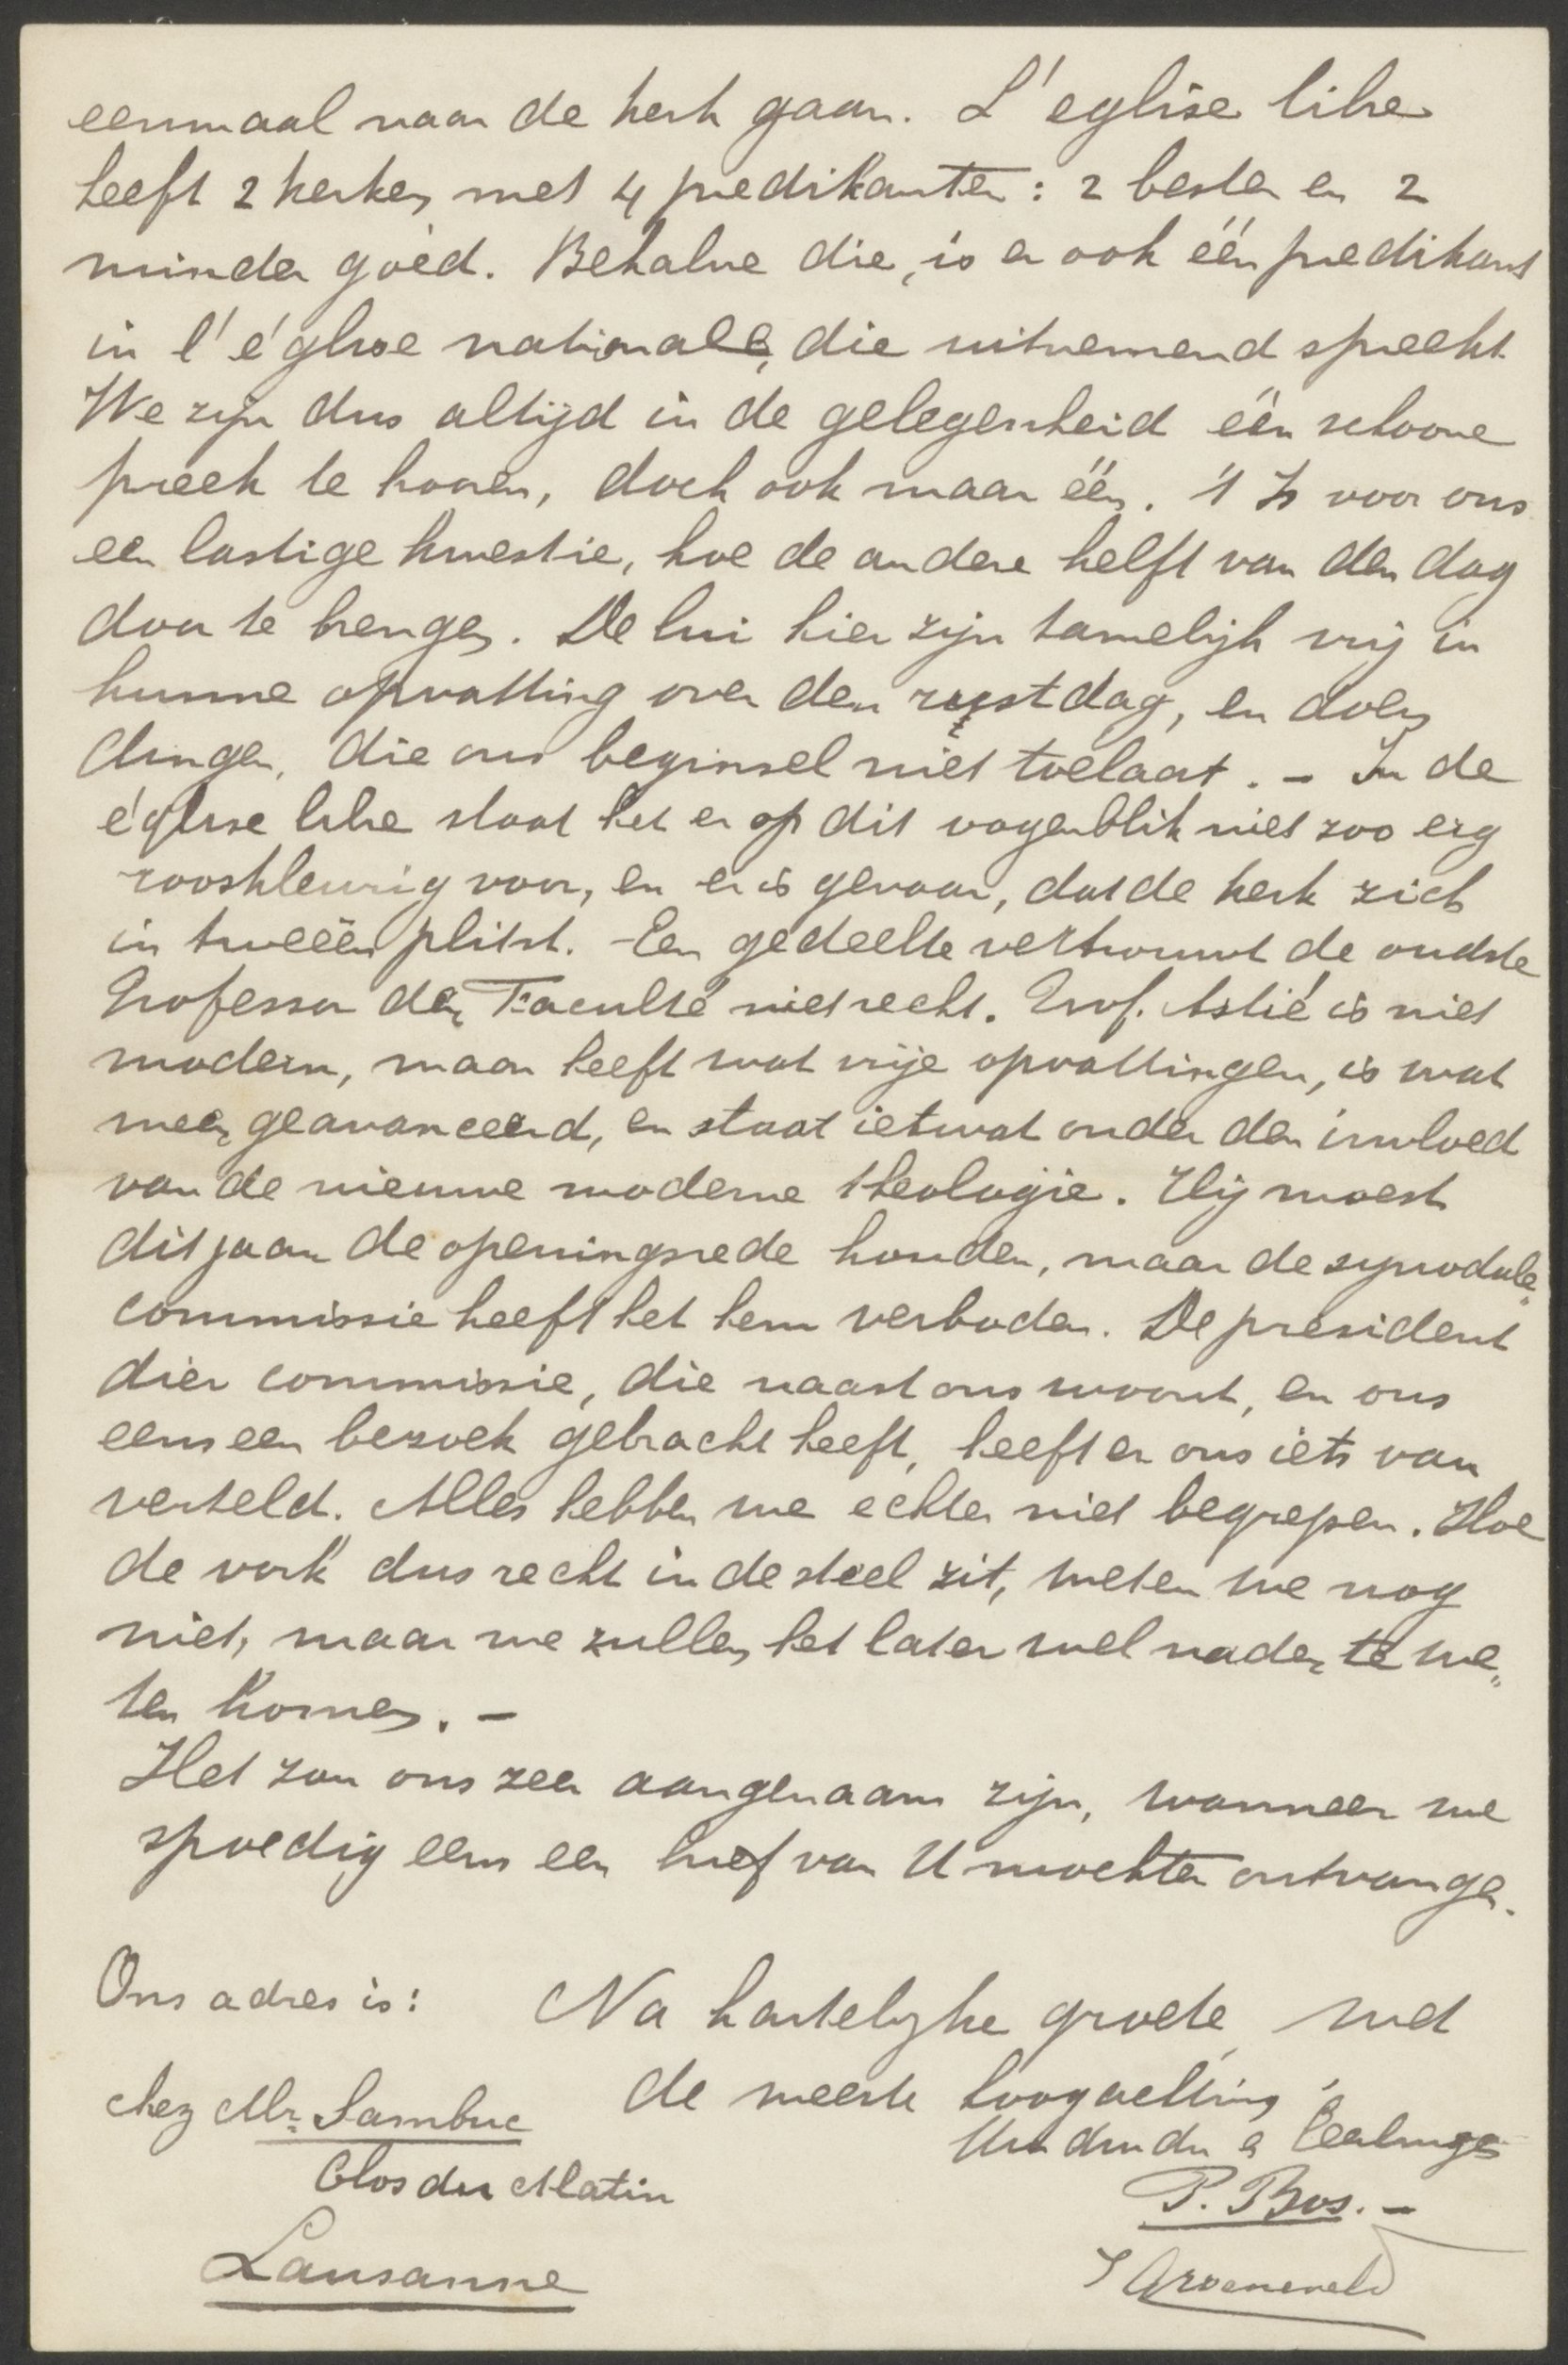 eenmaal naar de kerk gaan. L'eglise libre
heeft 2 kerken met 4 predikanten: 2 beste en 2
minder goed. Behalve die, is er ook één predikant
in l'église nationale, die uitnemend spreekt.
We zijn dus altijd in de gelegenheid één schoone
preek te hooren, doch ook maar één. 't Is voor ons
een lastige kwestie, hoe de andere helft van den dag
door te brengen. De lui hier zijn tamelijk vrij in
hunne opvatting over den rustdag, en doen
dingen, die ons beginsel niet toelaat. – In de
église libre staat het er op dit oogenblik niet zoo erg
rooskleurig voor, en er is gevaar, dat de kerk zich
in tweeën splitst. Een gedeelte vertrouwt de oudste
Professor der Faculté niet recht. Prof. Astié is niet
modern, maar heeft wat vrije opvattingen, is wat
meer geavanceerd, en staat ietwat onder den invloed
van de nieuwe moderne theologie. Hij moest
dit jaar de openingsrede houden, maar de synodale
commissie heeft het hem verboden. De president
dier commissie, die naast ons woont, en ons
eens een bezoek gebracht heeft, heeft er ons iets van
verteld. Alles hebben we echter niet begrepen. Hoe
de vork dus recht in de steel zit, weten we nog
niet, maar we zullen het later wel nader te we„
ten komen. –
Het zou ons zeer aangenaam zijn, wanneer we
spoedig eens een brief van U mochten ontvangen.
Ons adres is:
chez Mr. Sambuc
Clos du Matin
Lausanne
Na hartelijke groete, met
de meeste hoogachting,
Uw dw dn e Leerlinge
P. Bos. –
J Groeneveld